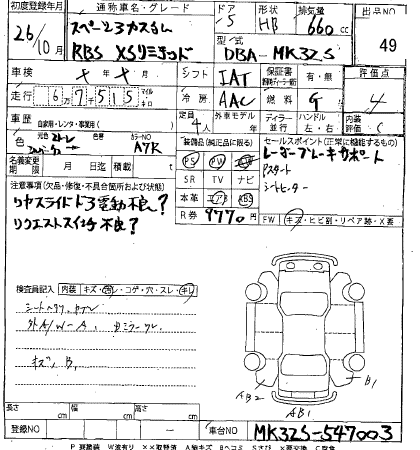 初度登録年月 通称車名・グレード ドア 形状 排気量 出品NO
26/10月 スペーシアカスタム 5 HB 660cc 49
RBS XSリミテッド 型式 DBA-MK32S
車検 × 年 × 月 シフト IAT 保証書 有・無 評価点
走行 6万7千515 マイル キロ 冷房 AAC 燃料 G 4
車歴 自家用・レンタ・事業用( ) 定員 4人 外車モデル年 ディーラー 並行 ハンドル 左・右 内装評価 C
色 元色 カラーNO A7R 装備品(純正品に限る) セールスポイント(正常に機能するもの)
名義変更期限 月 日 迄 積載 t PS PW レーダーブレーキサポート
注意事項(欠品・修復・不具合箇所および状態) SR TV ナビ Pスタート
リヤスライドドア電動不良? 本革 エアB ABS シートヒーター
リクエストスイッチ不良? R券 9770円 FW キズ・ヒビ割・リペア跡・X要
検査員記入 内装 キズ・汚レ・コゲ・穴・スレ・キレ
外A/W-A
キズ、B、
AB2 AB1 B1
長さ cm 幅 cm 高さ cm
登録NO 車台NO MK32S-547003